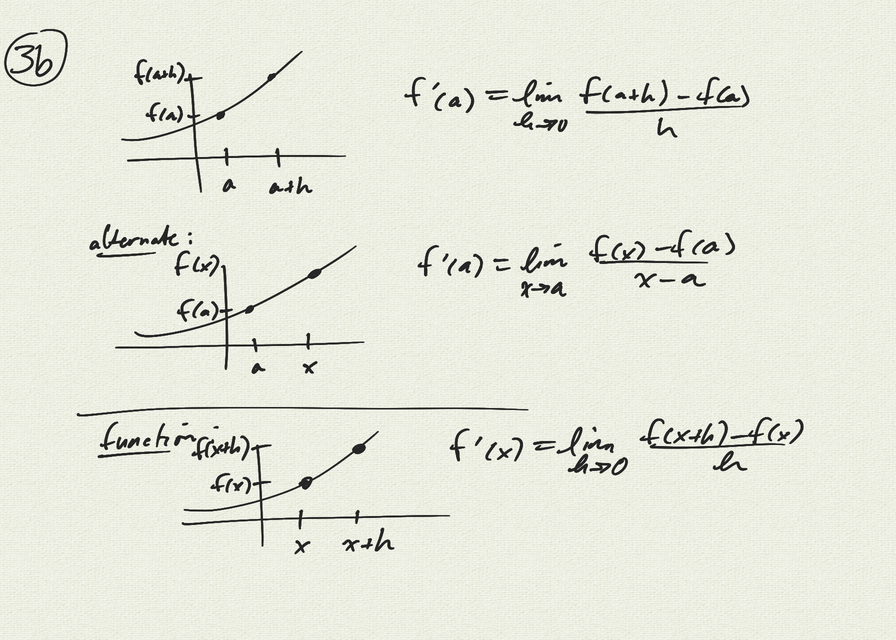 3b
f(a+h)
f(a)
a a+h
f'(a) = lim h→0 f(a+h) - f(a) / h
alternate:
f(x)
f(a)
a x
f'(a) = lim x→a f(x) - f(a) / x - a
function
f(x+h)
f(x)
x x+h
f'(x) = lim h→0 f(x+h) - f(x) / h